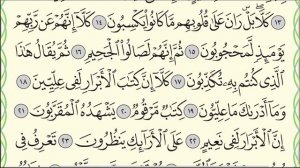 ١٣ كَلَّا ۖ بَلْ ۜ رَانَ عَلَىٰ قُلُوبِهِم مَّا كَانُوا۟ يَكْسِبُونَ ١٤ كَلَّآ إِنَّهُمْ عَن رَّبِّهِمْ
يَوْمَئِذٍ لَّمَحْجُوبُونَ ١٥ ثُمَّ إِنَّهُمْ لَصَالُوا۟ ٱلْجَحِيمِ ١٦ ثُمَّ يُقَالُ هَٰذَا
ٱلَّذِى كُنتُم بِهِۦ تُكَذِّبُونَ ١٧ كَلَّآ إِنَّ كِتَٰبَ ٱلْأَبْرَارِ لَفِى عِلِّيِّينَ ١٨
وَمَآ أَدْرَىٰكَ مَا عِلِّيُّونَ ١٩ كِتَٰبٌ مَّرْقُومٌ ٢٠ يَشْهَدُهُ ٱلْمُقَرَّبُونَ ٢١
إِنَّ ٱلْأَبْرَارَ لَفِى نَعِيمٍ ٢٢ عَلَى ٱلْأَرَآئِكِ يَنظُرُونَ ٢٣ تَعْرِفُ فِى